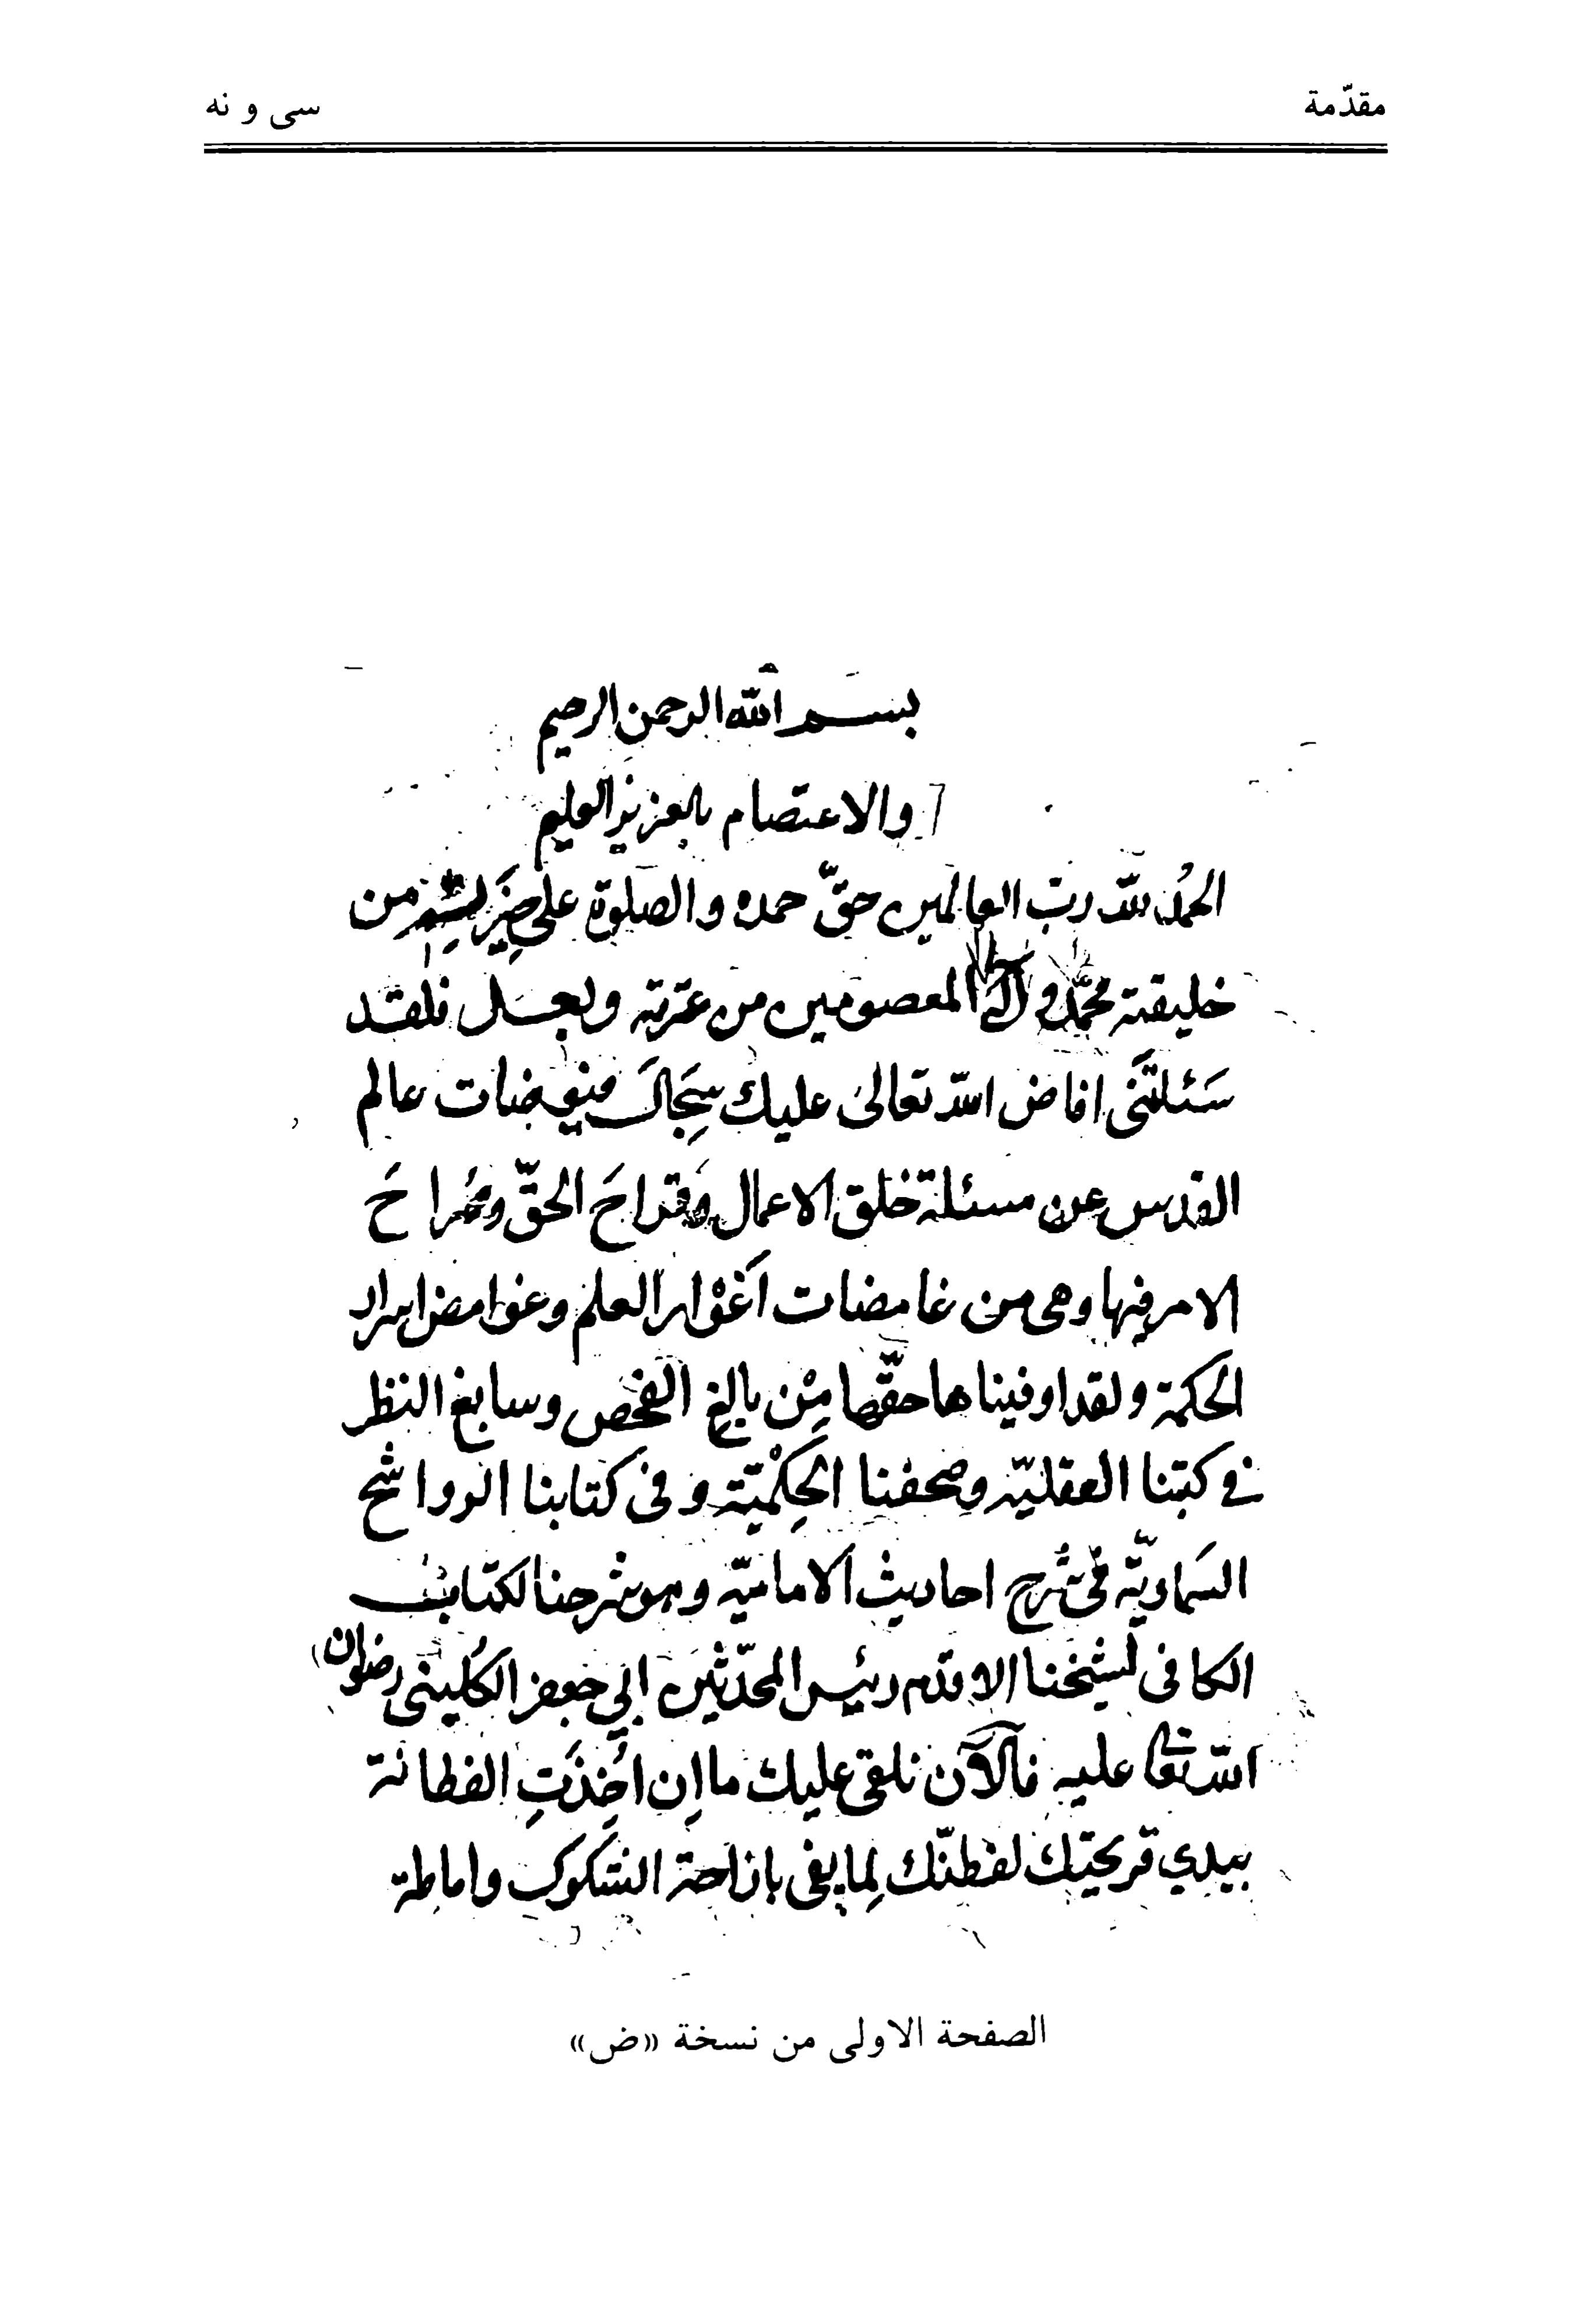 مقدّمة
سى و نه
بسم الله الرحمن الرحيم
والاعتصام بالعزيز العليم
الحمدُ لله ربّ العالمين حقّ حمده والصلوة على من
خليقته محمّد و المعصومين من عترته وبعد فلقد
سَئلتَنى افاض الله تعالى عليك سِجَالَ فيوضات عالم
القدس عن مسئلة خلق الاعمال وقَراحَ الحقّ وصُراحَ
الامر فيها وهى من غامضات اَغْوار العلم وغوامض اسرار
الحكمة ولقد اوفيناها حقّها مِنْ بالغ الفحص وسابغ النظر
فى كتبنا العقليّه وصحفنا الحِكْميّة وفى كتابنا الرواشح
السَماويّة فى شَرح احاديث الاماميّه وهو شرحنا لكتاب
الكافى لشيخنا الاقدم رئيس المحدّثين ابي جعفر الكُلينى رضوان
الله تعا عليه فالآن نلقى عليك ما اِن اخَذَتِ الفطانة
بيدي قريحتك لفطنّك لِما يفى بازاحة الشكوك واماطة
الصفحة الاولى من نسخة «ض»